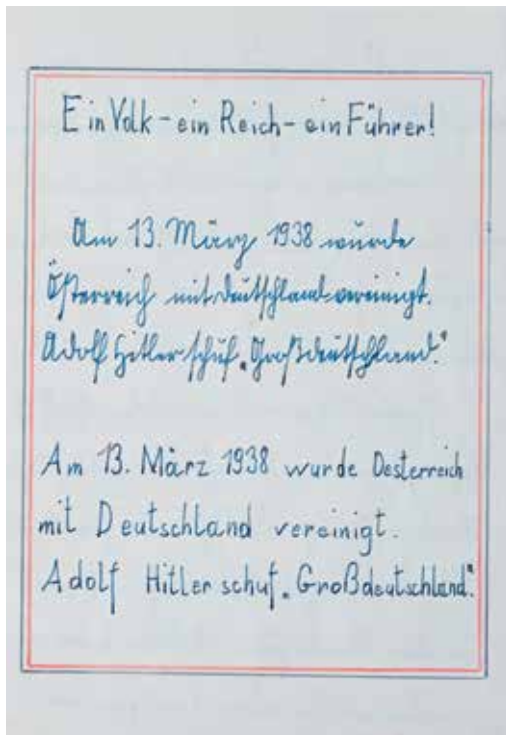 Ein Volk - ein Reich - ein Führer!
Am 13. März 1938 wurde
Österreich mit Deutschland vereinigt.
Adolf Hitler schuf „Großdeutschland“.
Am 13. März 1938 wurde Oesterreich
mit Deutschland vereinigt.
Adolf Hitler schuf „Großdeutschland“.